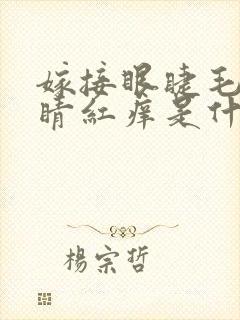 嫁接眼睫毛
睛红痒是什
杨宗哲